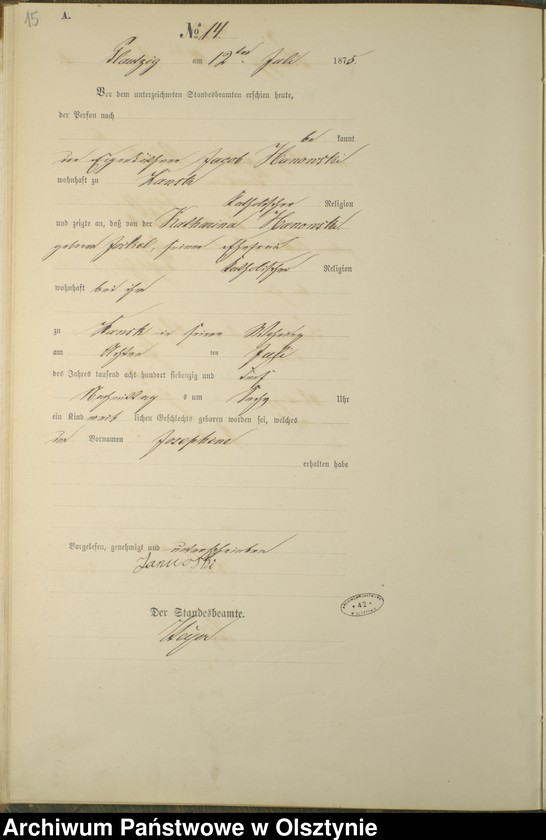 15
A.
No. 14.
am 12ten Juli 1875.
Vor dem unterzeichneten Standesbeamten erschien heute,
der Person nach
be kannt
der Jacob
wohnhaft zu Lansk
katholischer Religion
und zeigte an, daß von der Katharina
geborene seiner Ehefrau
katholischer Religion
wohnhaft bei ihm
zu Lansk in seiner Wohnung
am Achten ten Juli
des Jahres tausend acht hundert siebenzig und fünf
Nachmittags um sechs Uhr
ein Kind weiblichen Geschlechts geboren worden sei, welches
den Vornamen Josephine
erhalten habe
Vorgelesen, genehmigt und unterschrieben
Der Standesbeamte.
* 42 *
Archiwum Państwowe w Olsztynie